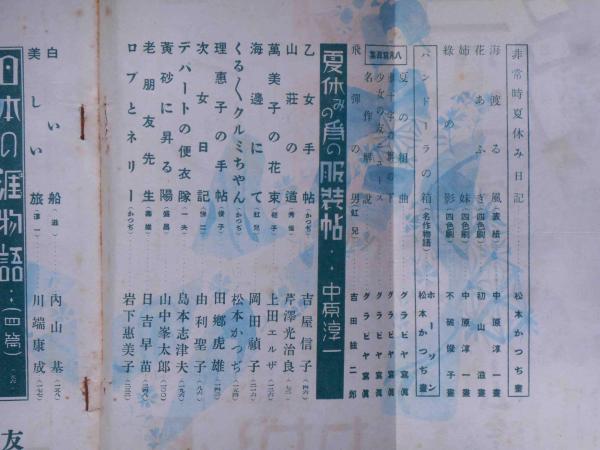 非常時夏休み日記 松本かつぢ畫
海渡る風(表紙) 中原淳一畫
花あふぎ(四色刷) 初山滋畫
姉妹(四色刷) 中原淳一畫
綠の影(四色刷) 不破俊子畫
パンドーラの箱(名作物語) ホーソン 松本かつぢ畫
八月寫眞集
夏の組曲 グラビヤ寫眞
グラビヤ寫眞
少女の友ニュース グラビヤ寫眞
名作解説 グラビヤ寫眞
飛彈の男(虹兒) 吉田絃二郎
夏休みの爲の服裝帖 中原淳一
乙女手帖(かつぢ) 吉屋信子
山莊の道 芹澤光治良
萬美子の花束 上田エルザ
海邊にて(虹兒) 岡田禎子
くる〳〵クルミちやん(かつぢ) 松本かつぢ
理惠子の手帖(俊子) 田鄕虎雄
次女日記 由利聖子
デパートの便衣隊(一夫) 島本志津夫
黄砂に昇る陽 山中峯太郎
老朋友先生 日吉早苗
ロブとネリー(かつぢ) 岩下惠美子
日本の涯物語(四篇)
白い船 內山基
美しい旅(淳一) 川端康成
友